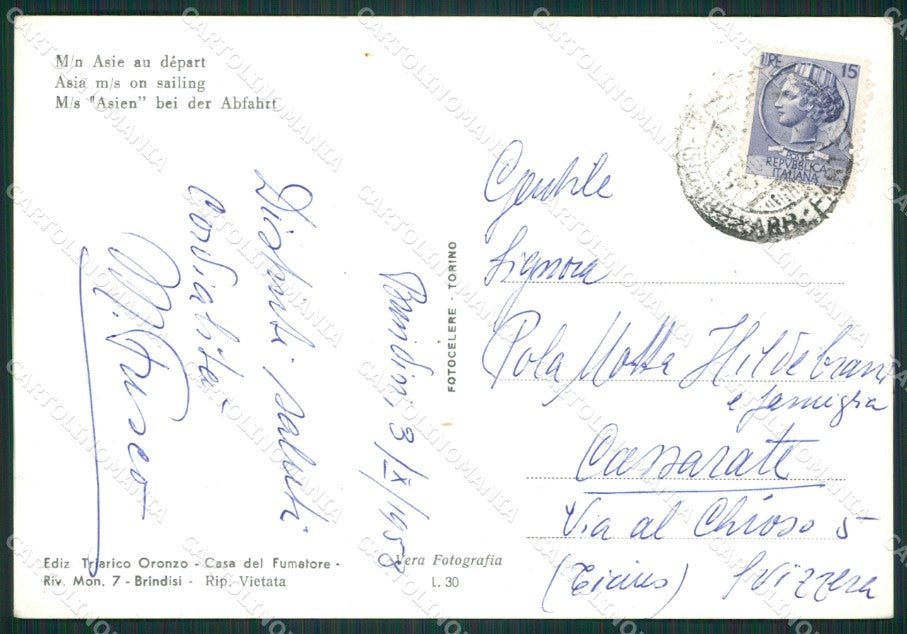 M/n Asie au départ
Asia m/s on sailing
M/s "Asien" bei der Abfahrt
LIRE 15
REPVBBLICA
ITALIANA
Gentile
Signora
Pola Motta Hildebrand
e famiglia
Cassarate
Via al Chioso 5
(Ticino) Svizzera
Brindisi, 3/IX/1958
Distinti saluti
Cordialità
M. Fusco
FOTOCELERE - TORINO
Ediz Triarico Oronzo - Casa del Fumatore -
Riv. Mon. 7 - Brindisi - Rip. Vietata
Vera Fotografia
L. 30
CARTOLINOMANIA